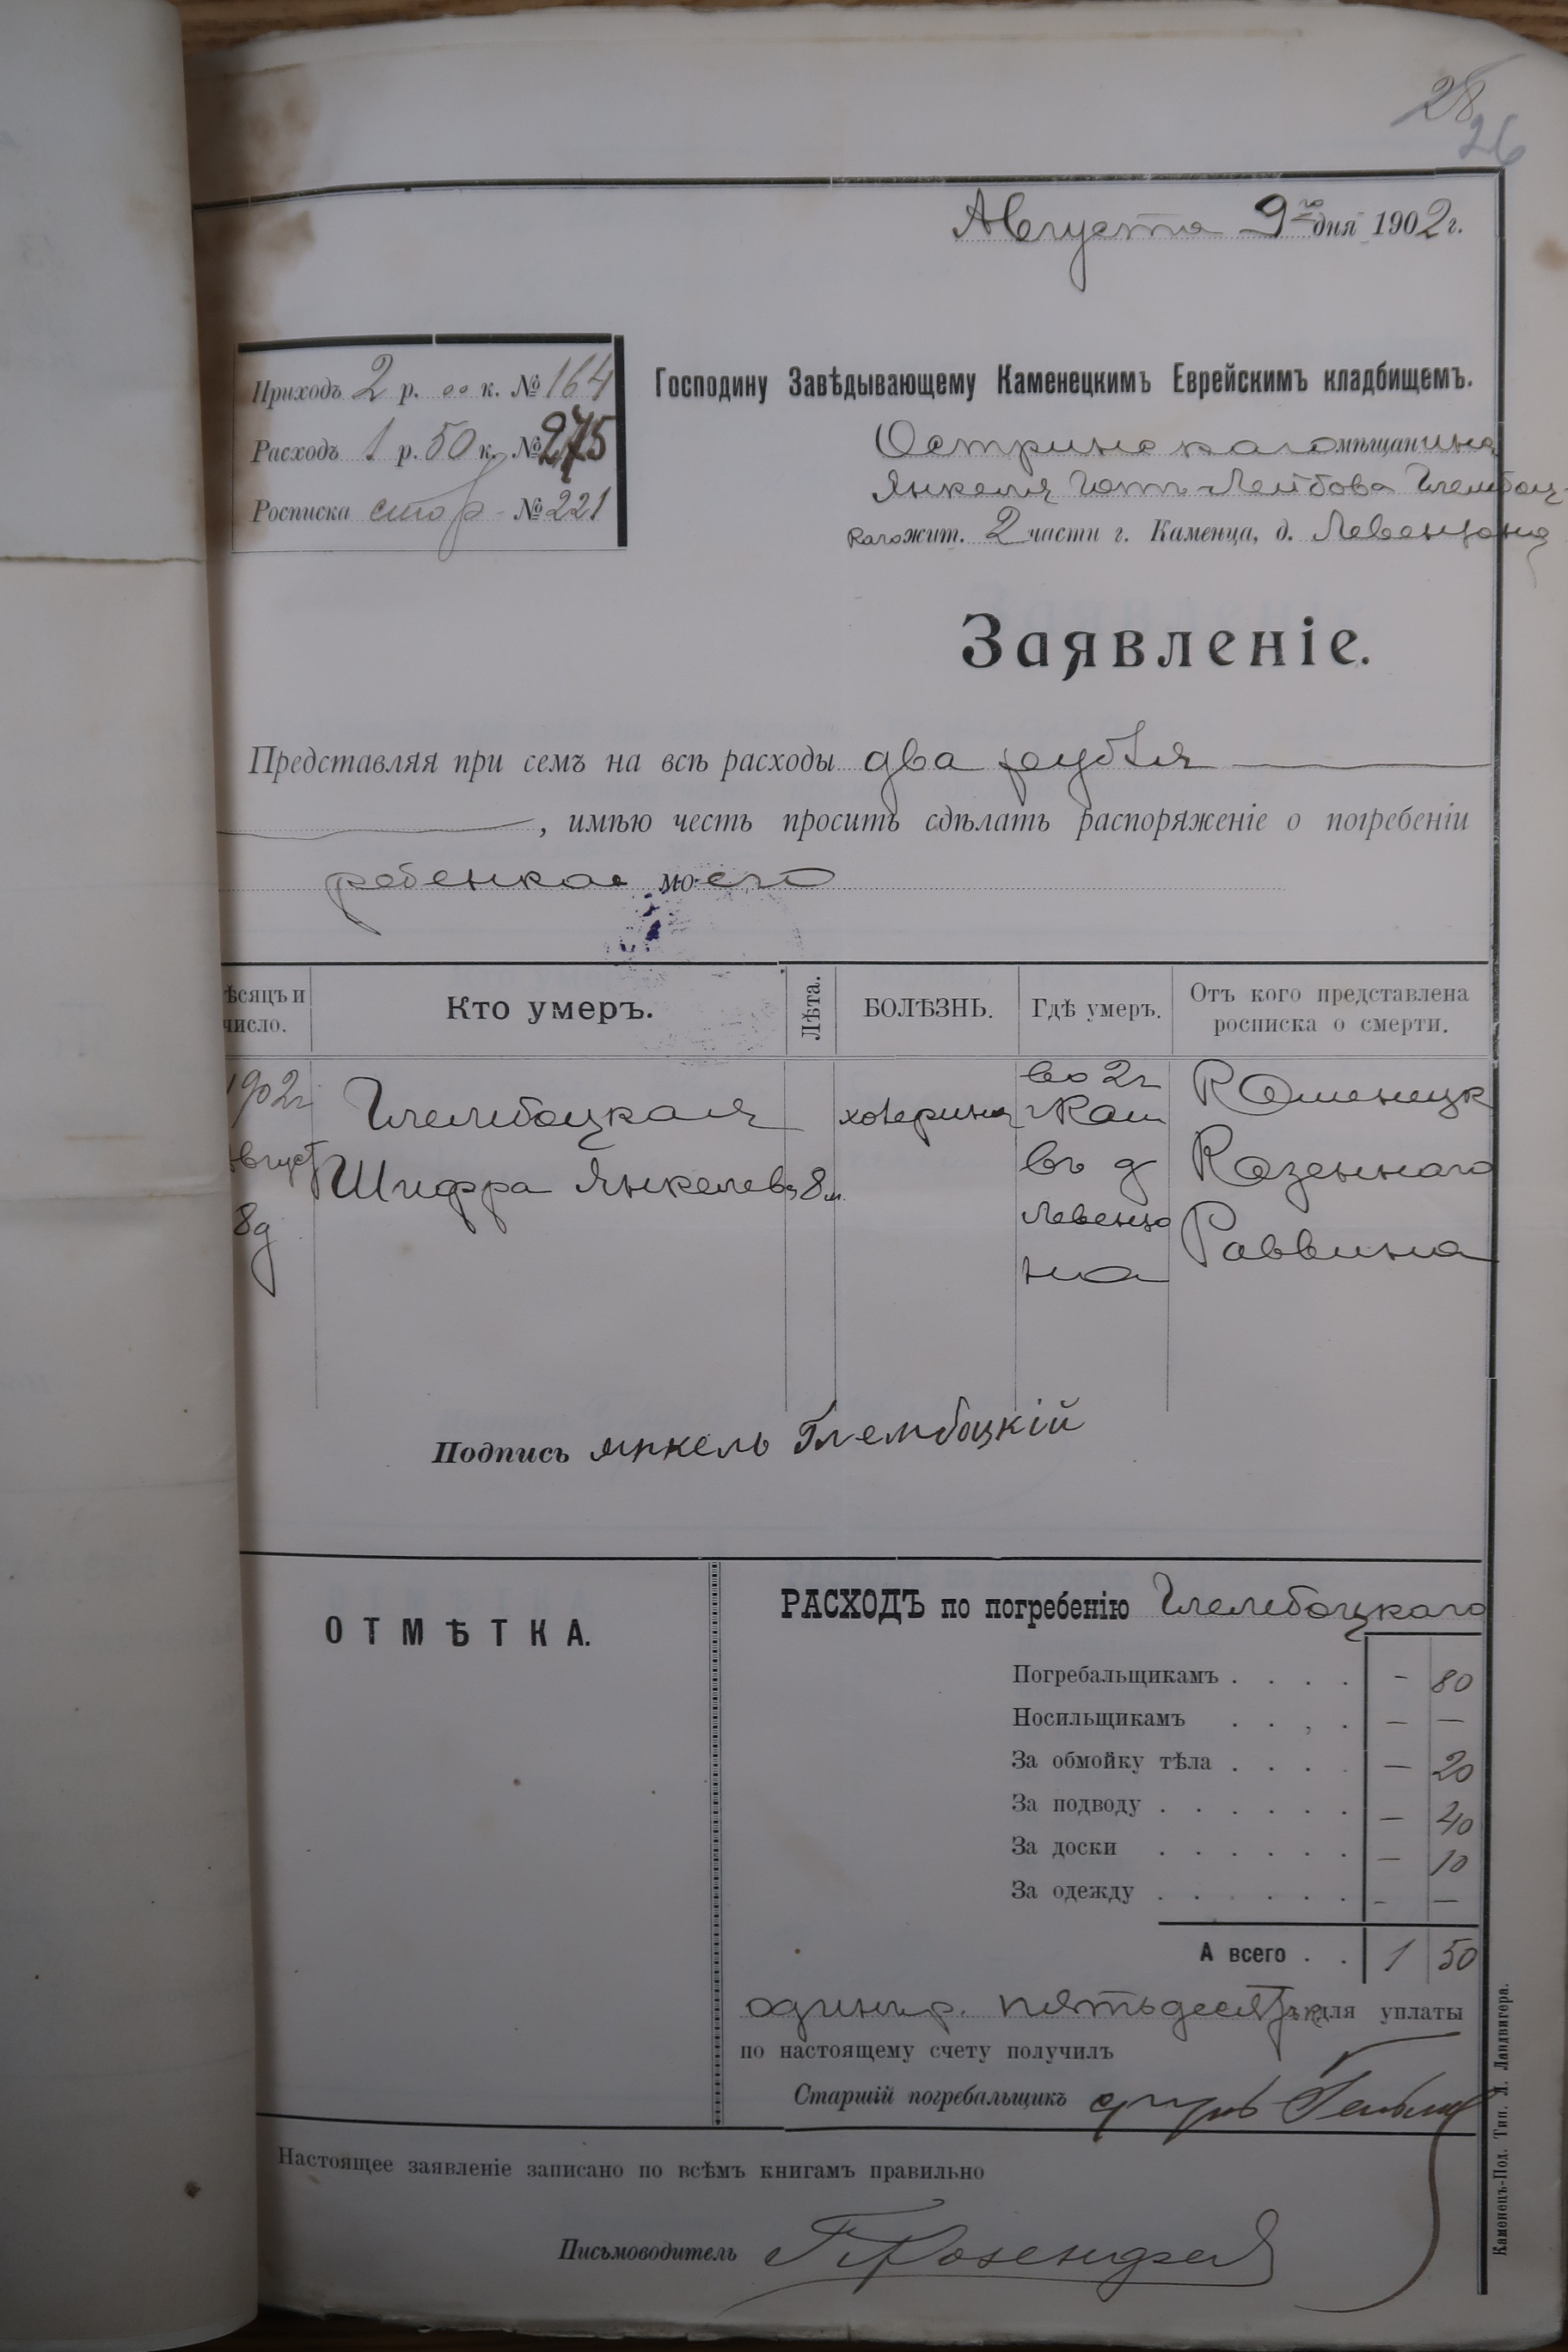 28
26
Августа 9го дня 1902 г.
Приходъ 2 р. 00 к. № 164
Расходъ 1 р. 50 к. № 275
Росписка стор № 221
Господину Завѣдывающему Каменецкимъ Еврейскимъ кладбищемъ.
Остринскаго мѣщанина
Янкеля Лейбова Глембоц-
каго жит. 2 части г. Каменца, д. Левенцона
Заявленіе.
Представляя при семъ на всѣ расходы два рубля
, имѣю честь просить сдѣлать распоряженіе о погребеніи
ребенка моего
ѣсяцъ и число. Кто умеръ. Лѣта. БОЛѢЗНЬ. Гдѣ умеръ. Отъ кого представлена росписка о смерти.
1902г Глембоцкая холерина во 2г Каменецк
вгуст Шифра Янкелева 8м. г Кам Казеннаго
8д въ д Раввина
Левенцо
на
Подпись Янкель Глембоцкій
ОТМѢТКА.
РАСХОДЪ по погребенію Глембоцкаго
Погребальщикамъ . . . . – 80
Носильщикамъ . . , . – –
За обмойку тѣла . . . . – 20
За подводу . . . . . . – 40
За доски . . . . . . – 10
За одежду . . . . . . – –
А всего . . 1 50
одинъ р. пятьдесятъ к для уплаты
по настоящему счету получилъ
Старшій погребальщикъ
Настоящее заявленіе записано по всѣмъ книгамъ правильно
Письмоводитель Г Розенфел
Каменецъ-Под. Тип. Л. Ландвигера.